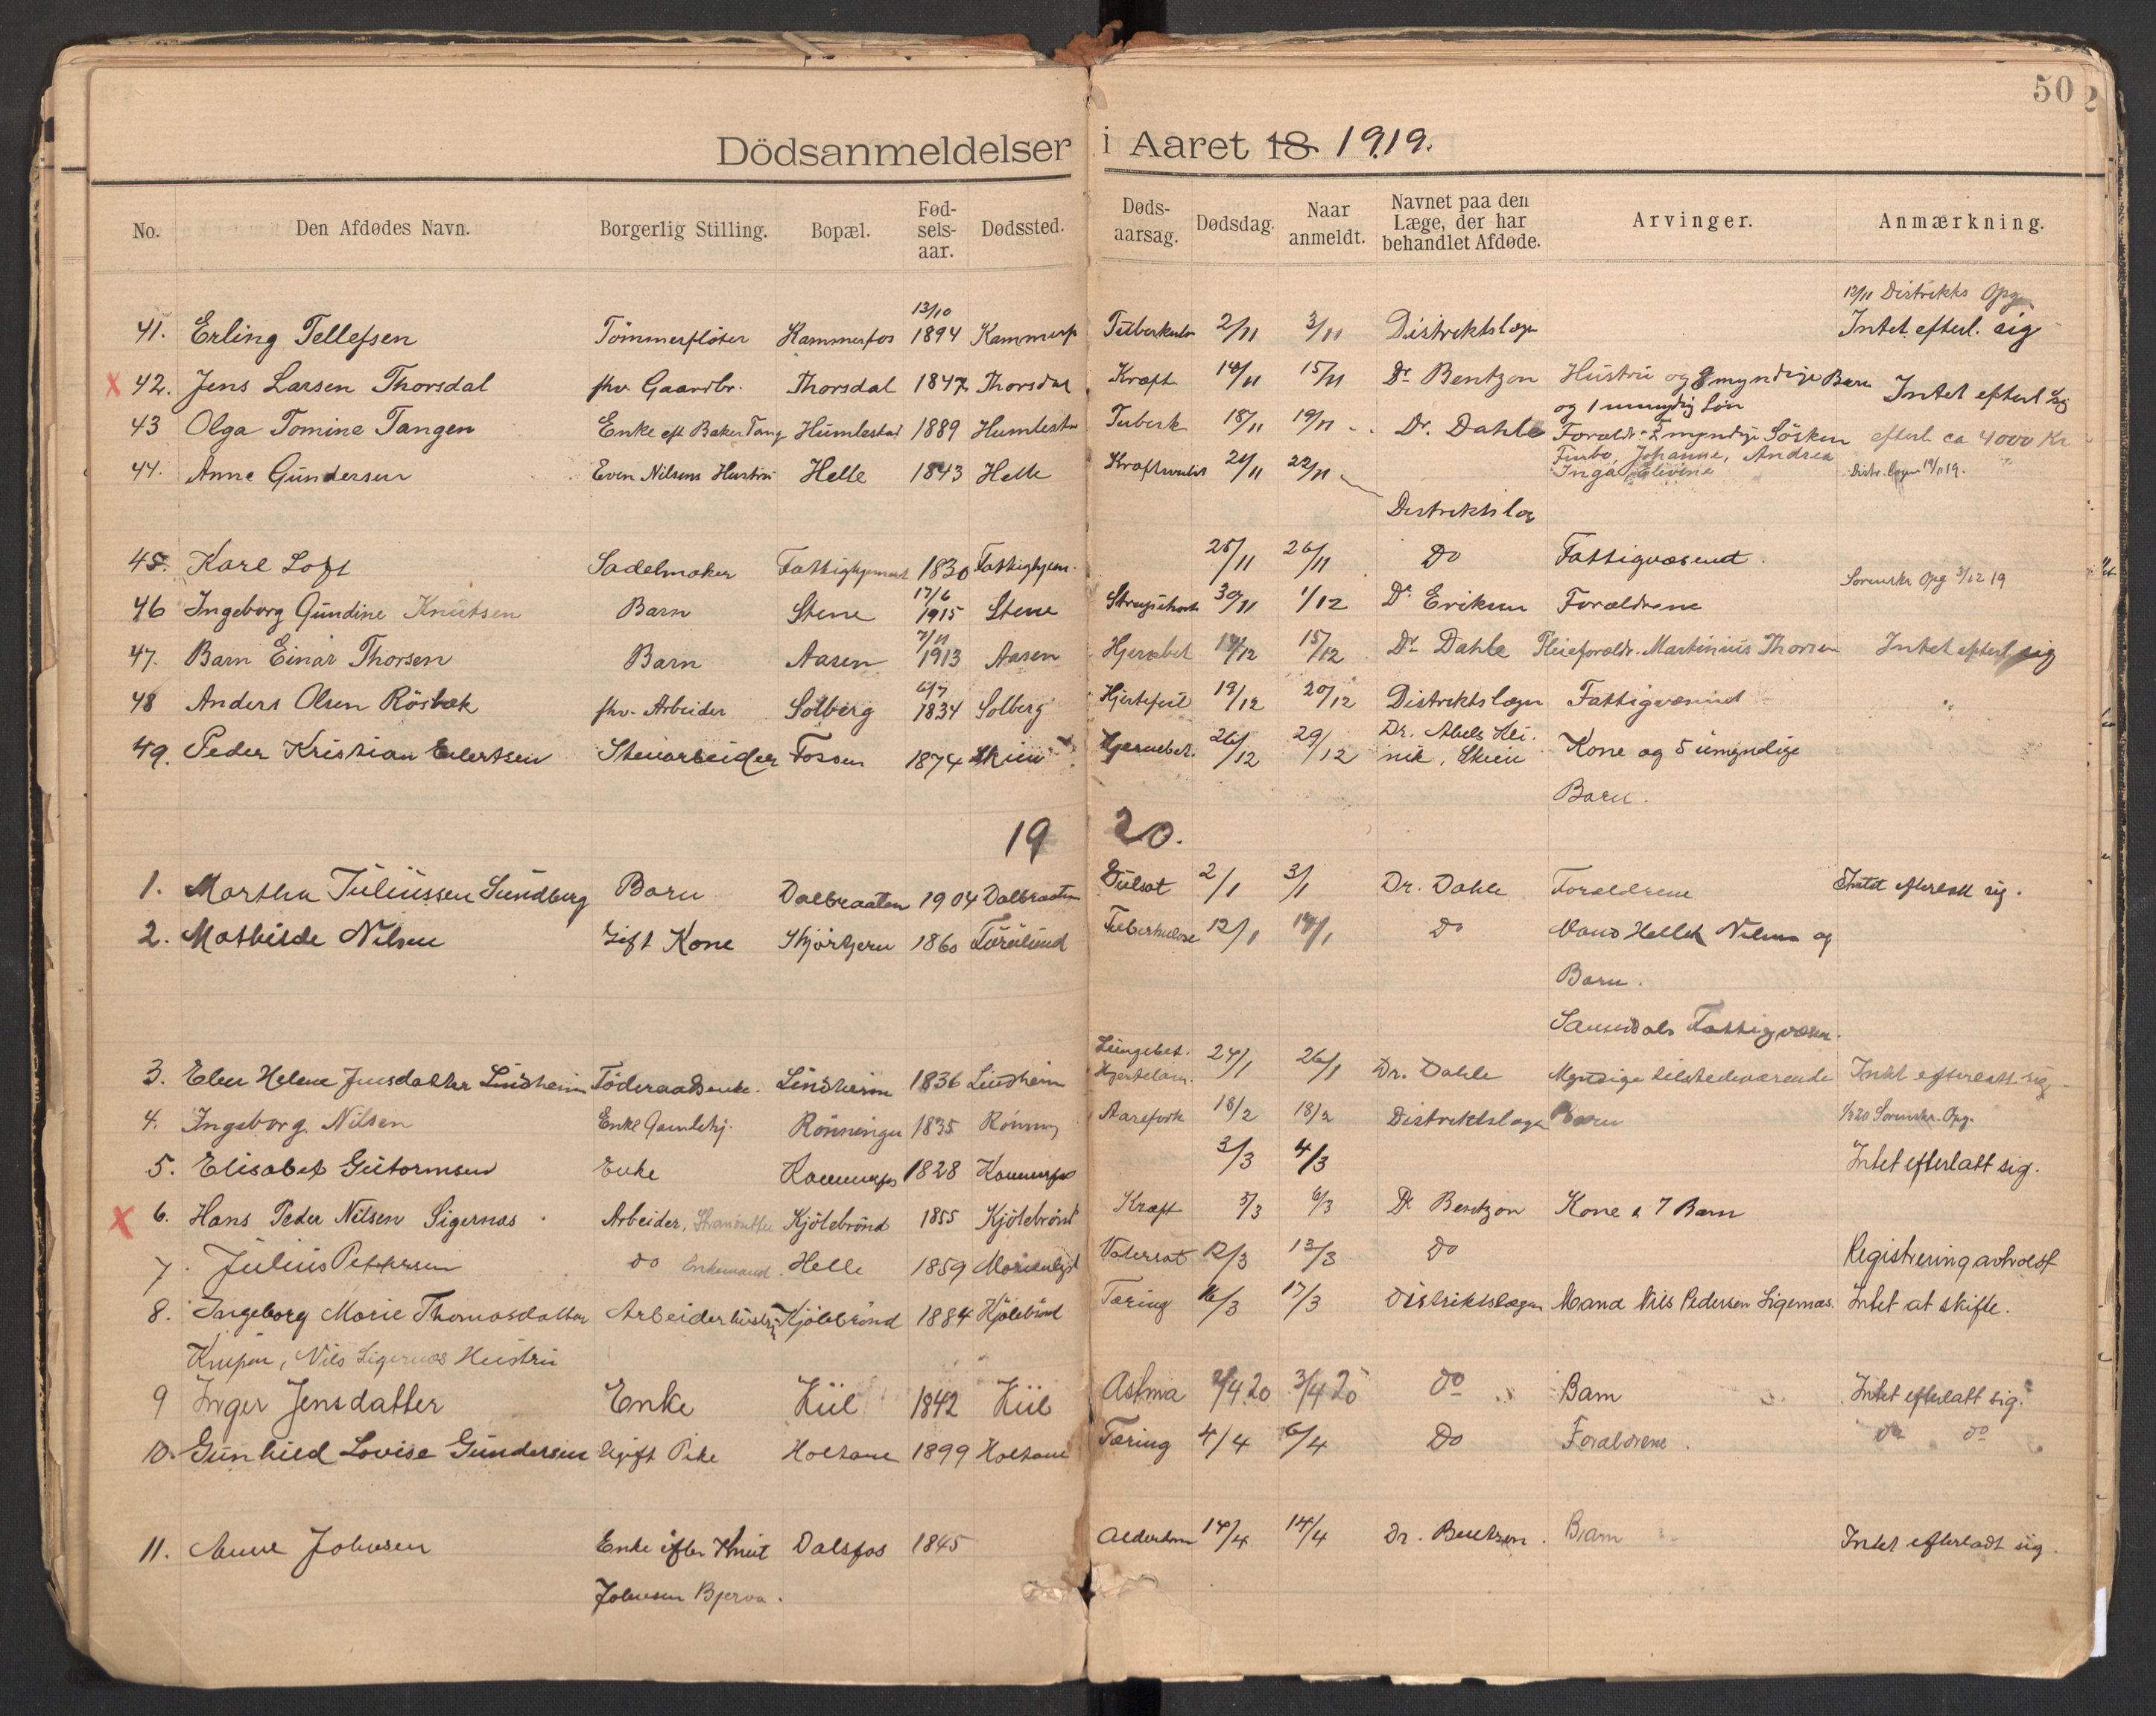 50
Dödsanmeldelser i Aaret 18 1919.
No. Den Afdødes Navn. Borgerlig Stilling. Bopæl. Fødselsaar. Dødssted. Dødsaarsag. Dødsdag. Naar anmeldt. Navnet paa den Læge, der har behandlet Afdøde. Arvinger. Anmærkning.
13/10 12/11 Distrikts Opg
41. Erling Tellefsen Tømmerfløter Kammerfos 1894 Kammerf Tuberkulos 2/11 3/11 Distriktslægen Intet efterl. sig
X 42. Jens Larsen Thorsdal fhv. Gaardbr. Thorsdal 1847 Thorsdal Kræft 14/11 15/11 Dr Bentzon Hustru og 8 myndige Børn Intet efterl sig
og 1 umyndig Søn
43 Olga Tomine Tangen Enke eft Baker Tang Humlestad 1889 Humlesta Tuberk 18/11 19/11 Dr. Dahle Forældr. 2 myndige Søsken efterl. ca 4000 Kr
Johanne, Andrea
44. Anne Gundersen Even Nilsens Hustru Helle 1843 Helle 21/11 22/11 Inga Distr. lægen 19/11 19.
Distriktslæg
45. Karl Loft Sadelmaker Fattighjemmet 1830 Fattighjem. 25/11 26/11 Do Fattigvæsenet.
17/6 Sorenskr Opg 3/12 19
46 Ingeborg Gundine Knutsen Barn Stene 1915 Stene Strupehost 30/11 1/12 Dr Eriksen Forældrene
7/11
47. Barn Einar Thorsen Barn Aasen 1913 Aasen 14/12 15/12 Dr Dahle Pleieforældr. Martinius Thorsen Intet efterl sig
6/7
48 Anders Olsen Rösbæk fhv. Arbeider Solberg 1834 Solberg Hjertefeil 19/12 20/12 Distriktslægen Fattigvæsenet "
49. Peder Kristian Eilertsen Stenarbeider Fossen 1874 Skien Hjernebet. 26/12 29/12 Dr. Abels Klinik, Skien Kone og 5 umyndige
Barn.
19 20.
1. Martha Juliussen Sundberg Barn Dalbraaten 1904 Dalbraaten Gulsot 2/1 3/1 Dr. Dahle Forældrene Intet efterlatt sig.
2. Mathilde Nilsen Gift Kone 1860 Furulund Tuberkulose 12/1 14/1 Do Mand Nilsen og
Barn.
Sannidals Fattigvæsen.
Lungebet.
3. Elen Helene Jensdatter Lindheim Föderaadsenke. Lindheim 1836 Lindheim Hjertelam. 24/1 26/1 Dr. Dahle Myndige tilstedeværende Intet efterlatt sig
4. Ingeborg Nilsen Enke Gamlehj. Rönningen 1835 Rönning Aarefork 16/2 18/2 Distriktslægen Børn 1/3 20 Sorenskr. Opg.
5. Elisabet Gutormsen Enke Kammerfos 1828 Kammerfos 3/3 4/3 Intet efterlatt sig.
X 6. Hans Peder Nilsen Sigernæs Arbeider, Kjölebrönd 1855 Kjölebrönd Kræft 5/3 6/3 Dr Bentzon Kone & 7 Barn
7. Julius Pettersen do Enkemand. Helle 1859 Vatersot 12/3 13/3 Do Registrering avholdt
8. Ingeborg Marie Thomasdatter Arbeiderhustru Kjölebrönd 1884 Kjölebrönd Tæring 16/3 17/3 Distriktslægen Mand Nils Pedersen Sigernæs. Intet at skifte.
Nils Sigernæs Hustru
9 Inger Jensdatter Enke Kiil 1842 Kiil Astma 2/4 20 3/4 20 do Barn Intet efterlatt sig.
10. Gunhild Lovise Gundersen Ugift Pike Holtane 1899 Holtane Tæring 4/4 6/4 Do Forældrene. do do
11. Anne Johnsen Enke efter Knut Dalsfos 1845 Alderdom 14/4 14/4 Dr. Bentzon. Barn Intet efterladt sig.
Johnsen Bjerva.